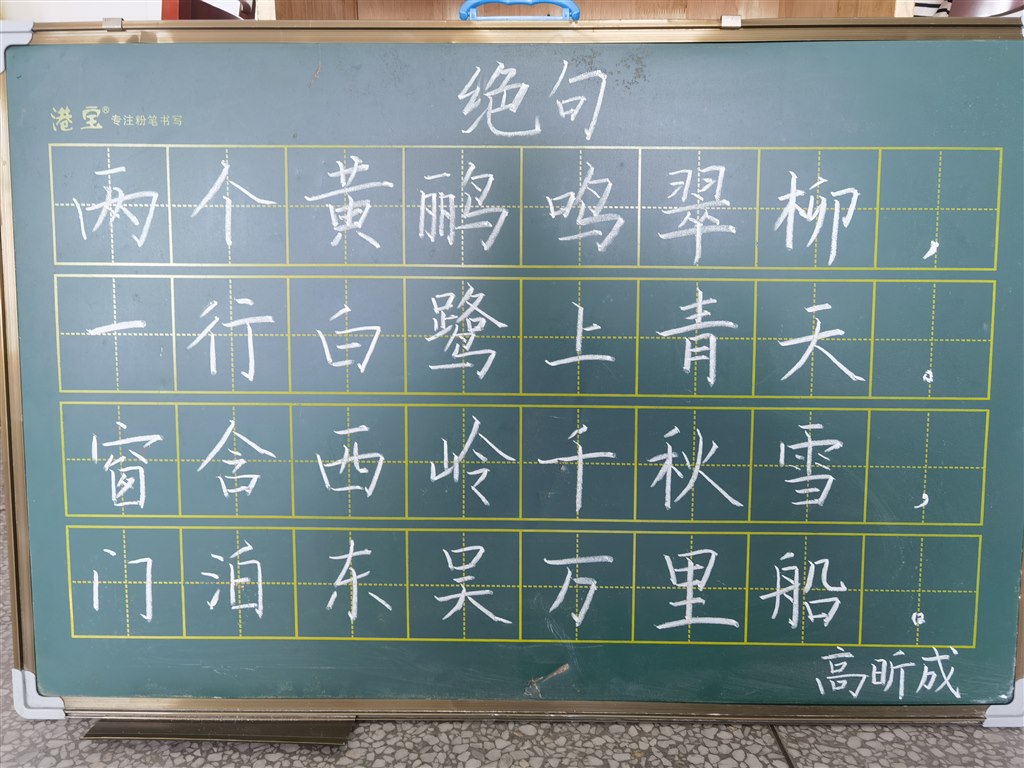 绝句
港宝® 专注粉笔书写
两个黄鹂鸣翠柳，
一行白鹭上青天。
窗含西岭千秋雪，
门泊东吴万里船。
高昕成